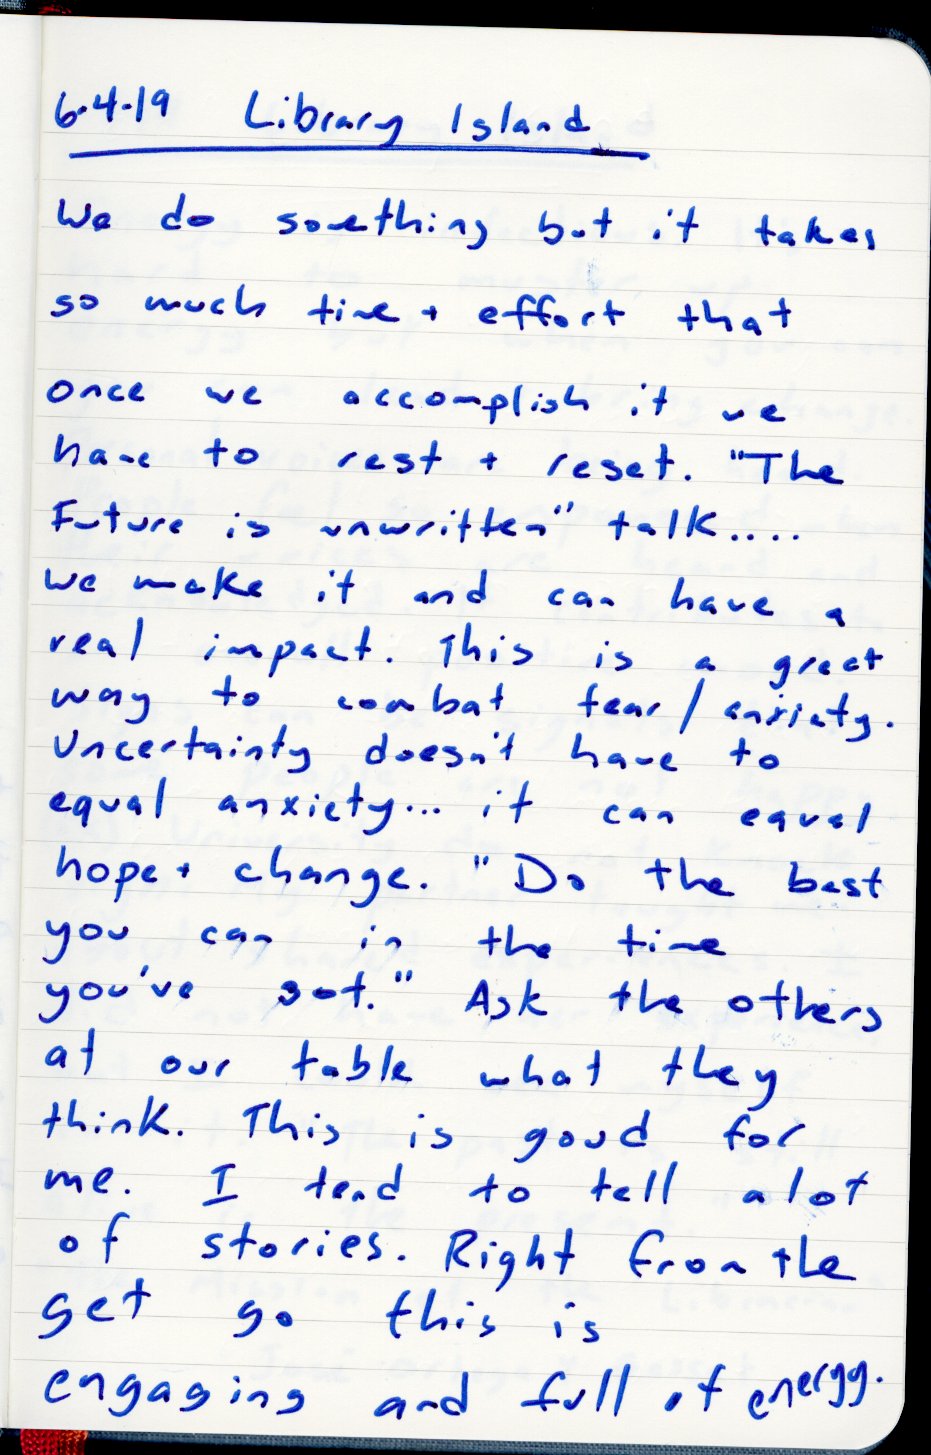 6.4.19 Library Island
We do something but it takes
so much time + effort that
once we accomplish it we
have to rest + reset. "The
Future is unwritten" talk....
We make it and can have a
real impact. This is a great
way to combat fear/anxiety.
Uncertainty doesn't have to
equal anxiety... it can equal
hope + change. "Do the best
you can in the time
you've got." Ask the others
at our table what they
think. This is good for
me. I tend to tell a lot
of stories. Right from the
get go this is
engaging and full of energy.